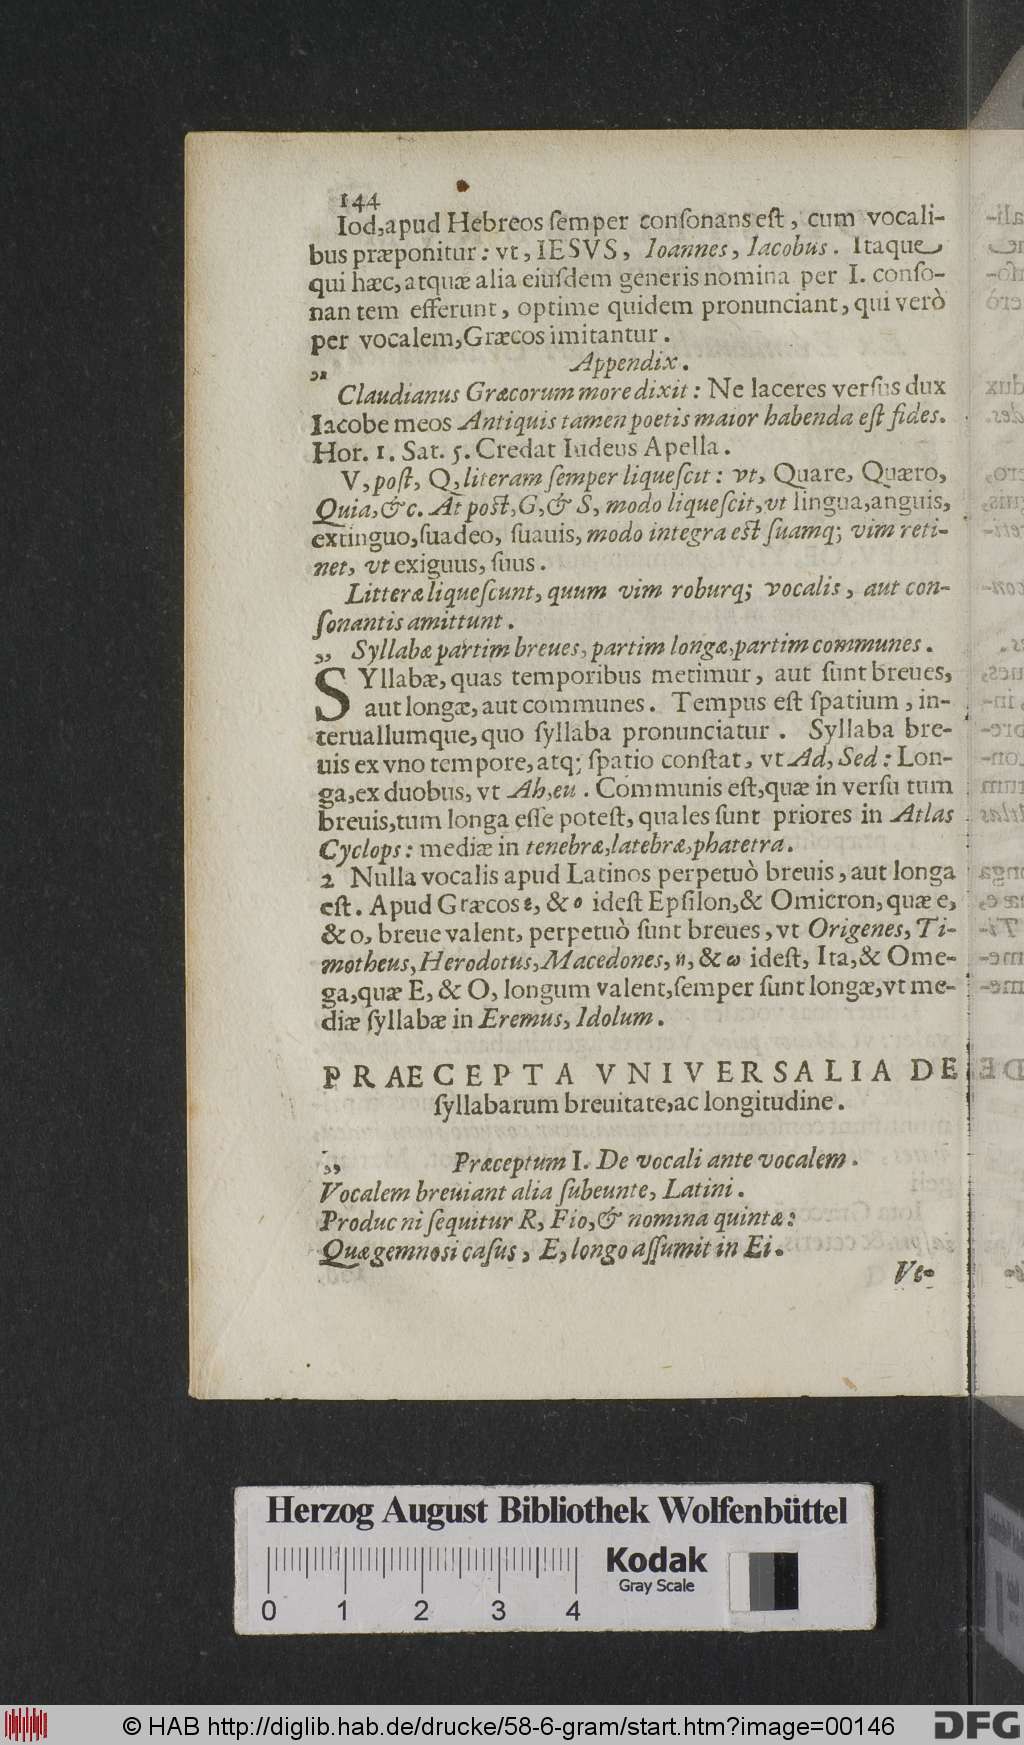 144
Iod,apud Hebreos ſemper conſonans eſt, cum vocali-
bus præponitur: vt, IESVS, Ioannes, Iacobus. Itaque
qui hæc, atquæ alia eiuſdem generis nomina per I. conſo-
nan tem efferunt, optime quidem pronunciant, qui verò
per vocalem, Græcos imitantur.
Appendix.
Claudianus Græcorum more dixit: Ne laceres verſus dux
Iacobe meos Antiquis tamen poetis maior habenda eſt fides.
Hor. 1. Sat. 5. Credat Iudeus Apella.
V, poſt, Q, literam ſemper liqueſcit: vt, Quare, Quæro,
Quia, & c. At poſt, G, & S, modo liqueſcit, vt lingua, anguis,
extinguo, ſuadeo, ſuauis, modo integra eſt ſuamq; vim reti-
net, vt exiguus, ſuus.
Litteræ liqueſcunt, quum vim roburq; vocalis, aut con-
ſonantis amittunt.
„ Syllabæ partim breues, partim longæ, partim communes.
SYllabæ, quas temporibus metimur, aut ſunt breues,
aut longæ, aut communes. Tempus eſt ſpatium, in-
teruallumque, quo ſyllaba pronunciatur. Syllaba bre-
uis ex vno tempore, atq; ſpatio conſtat, vt Ad, Sed: Lon-
ga, ex duobus, vt Ah, eu. Communis eſt, quæ in verſu tum
breuis, tum longa eſſe poteſt, quales ſunt priores in Atlas
Cyclops: mediæ in tenebræ, latebræ, phatetra.
2 Nulla vocalis apud Latinos perpetuò breuis, aut longa
eſt. Apud Græcos ε, & ο ideſt Epſilon, & Omicron, quæ e,
& o, breue valent, perpetuò ſunt breues, vt Origenes, Ti-
motheus, Herodotus, Macedones, η, & ω ideſt, Ita, & Ome-
ga, quæ E, & O, longum valent, ſemper ſunt longæ, vt me-
diæ ſyllabæ in Eremus, Idolum.
PRAECEPTA VNIVERSALIA DE
ſyllabarum breuitate, ac longitudine.
„ Præceptum I. De vocali ante vocalem.
Vocalem breuiant alia ſubeunte, Latini.
Produc ni ſequitur R, Fio, & nomina quintæ:
Quæ gemnosi caſus, E, longo aſſumit in Ei.
Vt-
Herzog August Bibliothek Wolfenbüttel
0 1 2 3 4
Kodak
Gray Scale
© HAB http://diglib.hab.de/drucke/58-6-gram/start.htm?image=00146
DFG